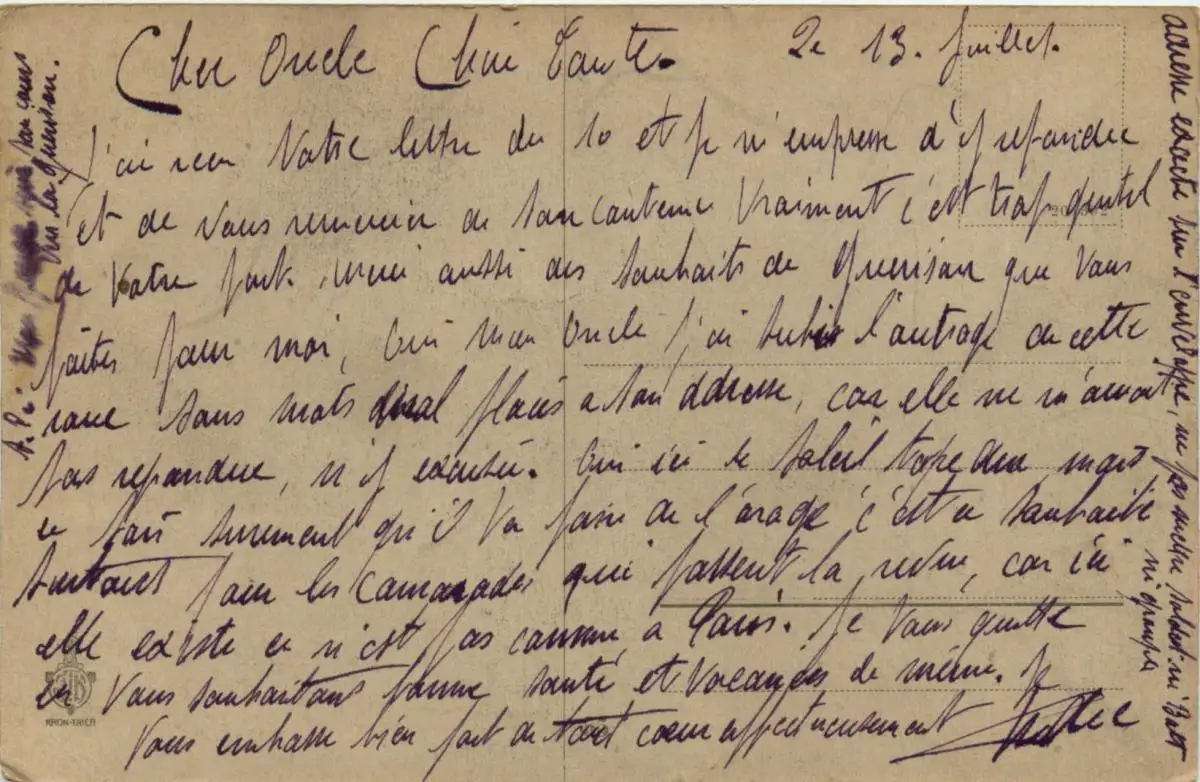 Cher Oncle Chère Tante. Le 13. Juillet.
J'ai reçu Votre lettre du 10 et je m'empresse d'y repondre
et de vous remercier de son contenue Vraiment c'est trop gentil
de Votre part. merci aussi des souhaits de Guerison que Vous
faites pour moi, Oui mon Oncle j'ai subis l'outrage de cette
sans mots placés a son addresse, car elle ne m'avait
pas repondue, n'y excusée. Oui ici le Soleil tape dur mais
ce soir surement qu'il Va faire de l'orage c'est a souhaité
surtout pour les Camarades qui passent la revue, car ici
elle existe ce n'est pas comme a Paris. Je Vous quitte
en Vous souhaitant bonne santé et Vacances de même. Je
Vous embrasse bien fort de tout cœur affectueusement
KRON-TRIER
adresse exacte sur l'enveloppe, ne pas mettre soldat ni Bat
ni groupe
qui par cours